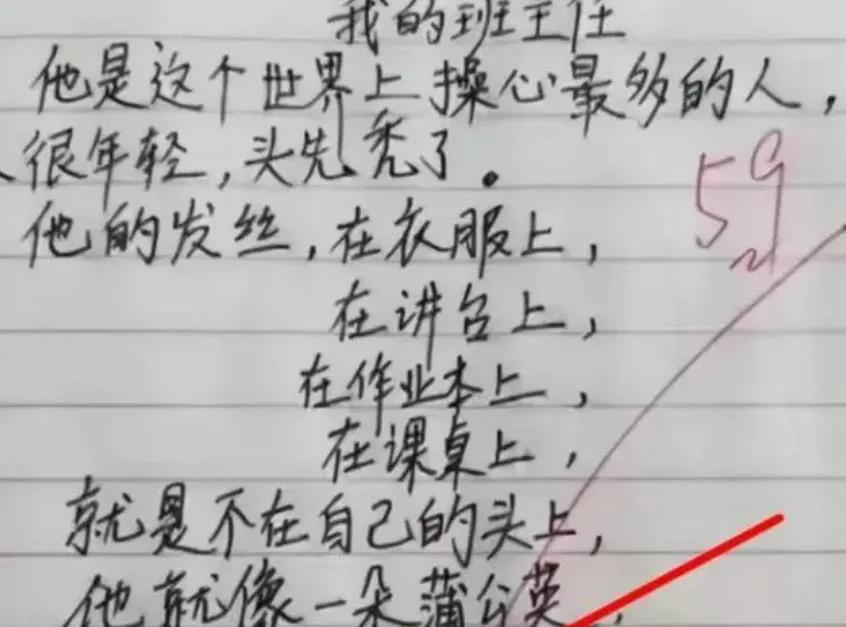 我的班主任
他是这个世界上操心最多的人，
人很年轻，头先秃了。
59
他的发丝，在衣服上，
在讲台上，
在作业本上，
在课桌上，
就是不在自己的头上，
他就像一朵蒲公英，